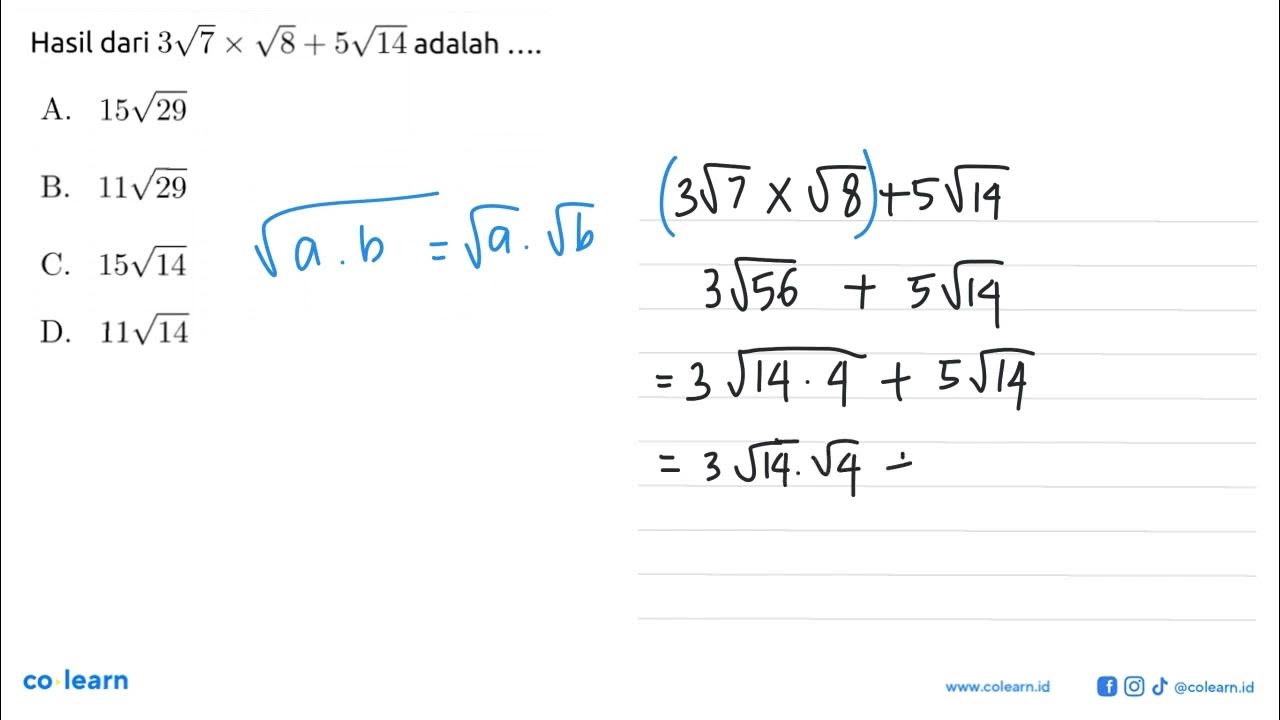 Hasil dari 3√7 × √8 + 5√14 adalah ....
A. 15√29
B. 11√29
C. 15√14
D. 11√14
√a . b = √a . √b
(3√7 × √8) + 5√14
3√56 + 5√14
= 3 √14 . 4 + 5√14
= 3 √14 . √4 ÷
co learn
www.colearn.id @colearn.id